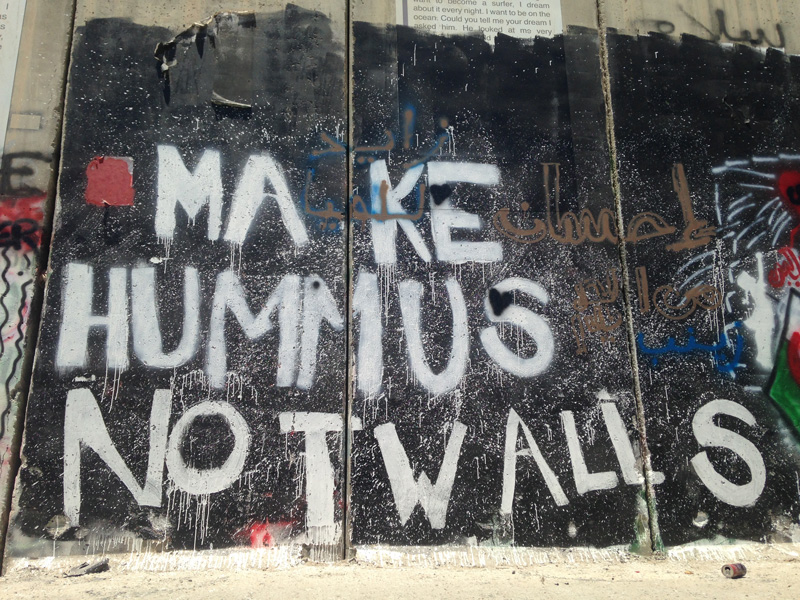 want to become a surfer, I dream
about it every night. I want to be on the
ocean. Could you tell me your dream I
asked him. He looked at me very
MAKE
إحسان
HUMMUS
زينب
NOT WALLS